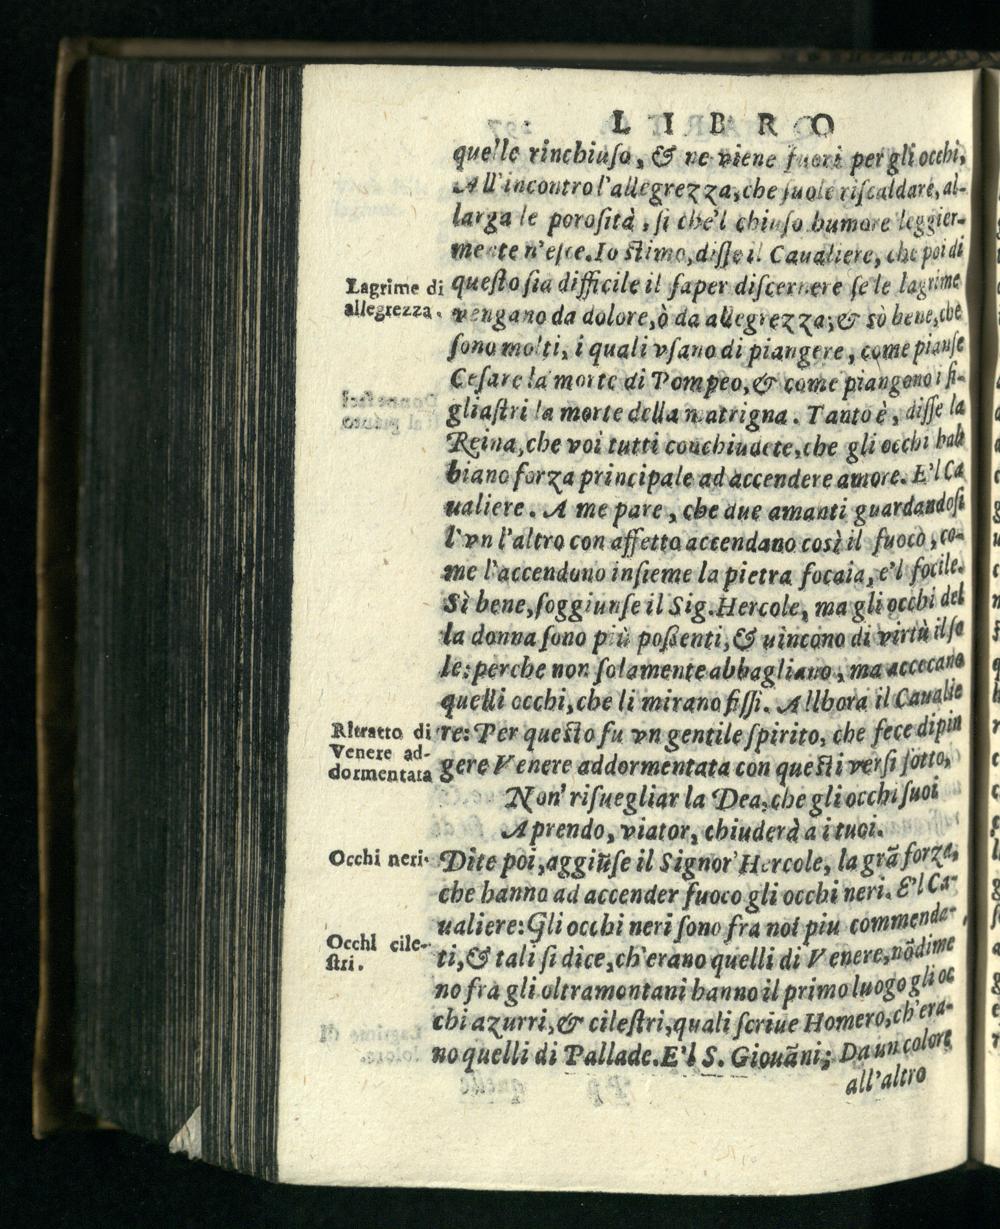 LIBRO
quelle rinchiuso, & ne viene fuori per gli occhi,
All'incontro l'allegrezza, che suole riscaldare, al-
larga le porosità, si che'l chiuso humore leggier-
mente n'esce. Io stimo, disse il Caualiere, che poi di
Lagrime di
allegrezza.
questo sia difficile il saper discernere se le lagrime
vengano da dolore, ò da allegrezza; & sò bene, che
sono molti, i quali vsano di piangere, come pianse
Cesare la morte di Pompeo, & come piangono i fi-
gliastri la morte della matrigna. Tanto è, disse la
Reina, che voi tutti conchiudete, che gli occhi hab
biano forza principale ad accendere amore. E'l Ca
ualiere. A me pare, che due amanti guardandosi
l'vn l'altro con affetto accendano così il fuoco, co-
me l'accendono insieme la pietra focaia, e'l focile.
Sì bene, soggiunse il Sig. Hercole, ma gli occhi del
la donna sono più possenti, & uincono di virtù il so
le: perche non solamente abbagliano, ma accecano
quelli occhi, che li mirano fissi. Allhora il Caualie
Ritratto di
Venere ad-
dormentata
re: Per questo fu vn gentile spirito, che fece dipin
gere Venere addormentata con questi versi sotto,
Non risuegliar la Dea, che gli occhi suoi
Aprendo, viator, chiuderà a i tuoi.
Occhi neri.
Dite poi, aggiũse il Signor Hercole, la grã forza,
che hanno ad accender fuoco gli occhi neri. E'l Ca-
ualiere: Gli occhi neri sono fra noi piu commenda-
Occhi cile-
stri.
ti, & tali si dice, ch'erano quelli di Venere, nõdime
no fra gli oltramontani hanno il primo luogo gli oc
chi azurri, & cilestri, quali scriue Homero, ch'era-
no quelli di Pallade. E'l S. Giouãni; Da un colore
all'altro